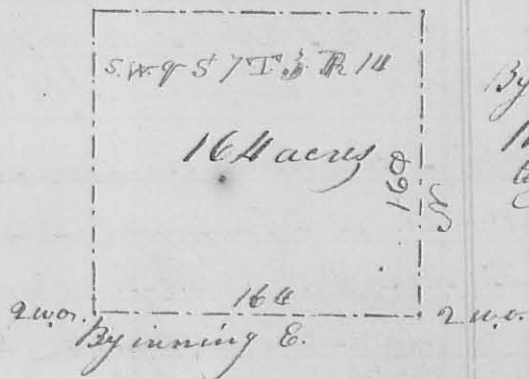 S.W. q S 7 T. 3 R 14
By
164 acres
160
N
164
2 w.o. 2 w.o.
Byinning E.